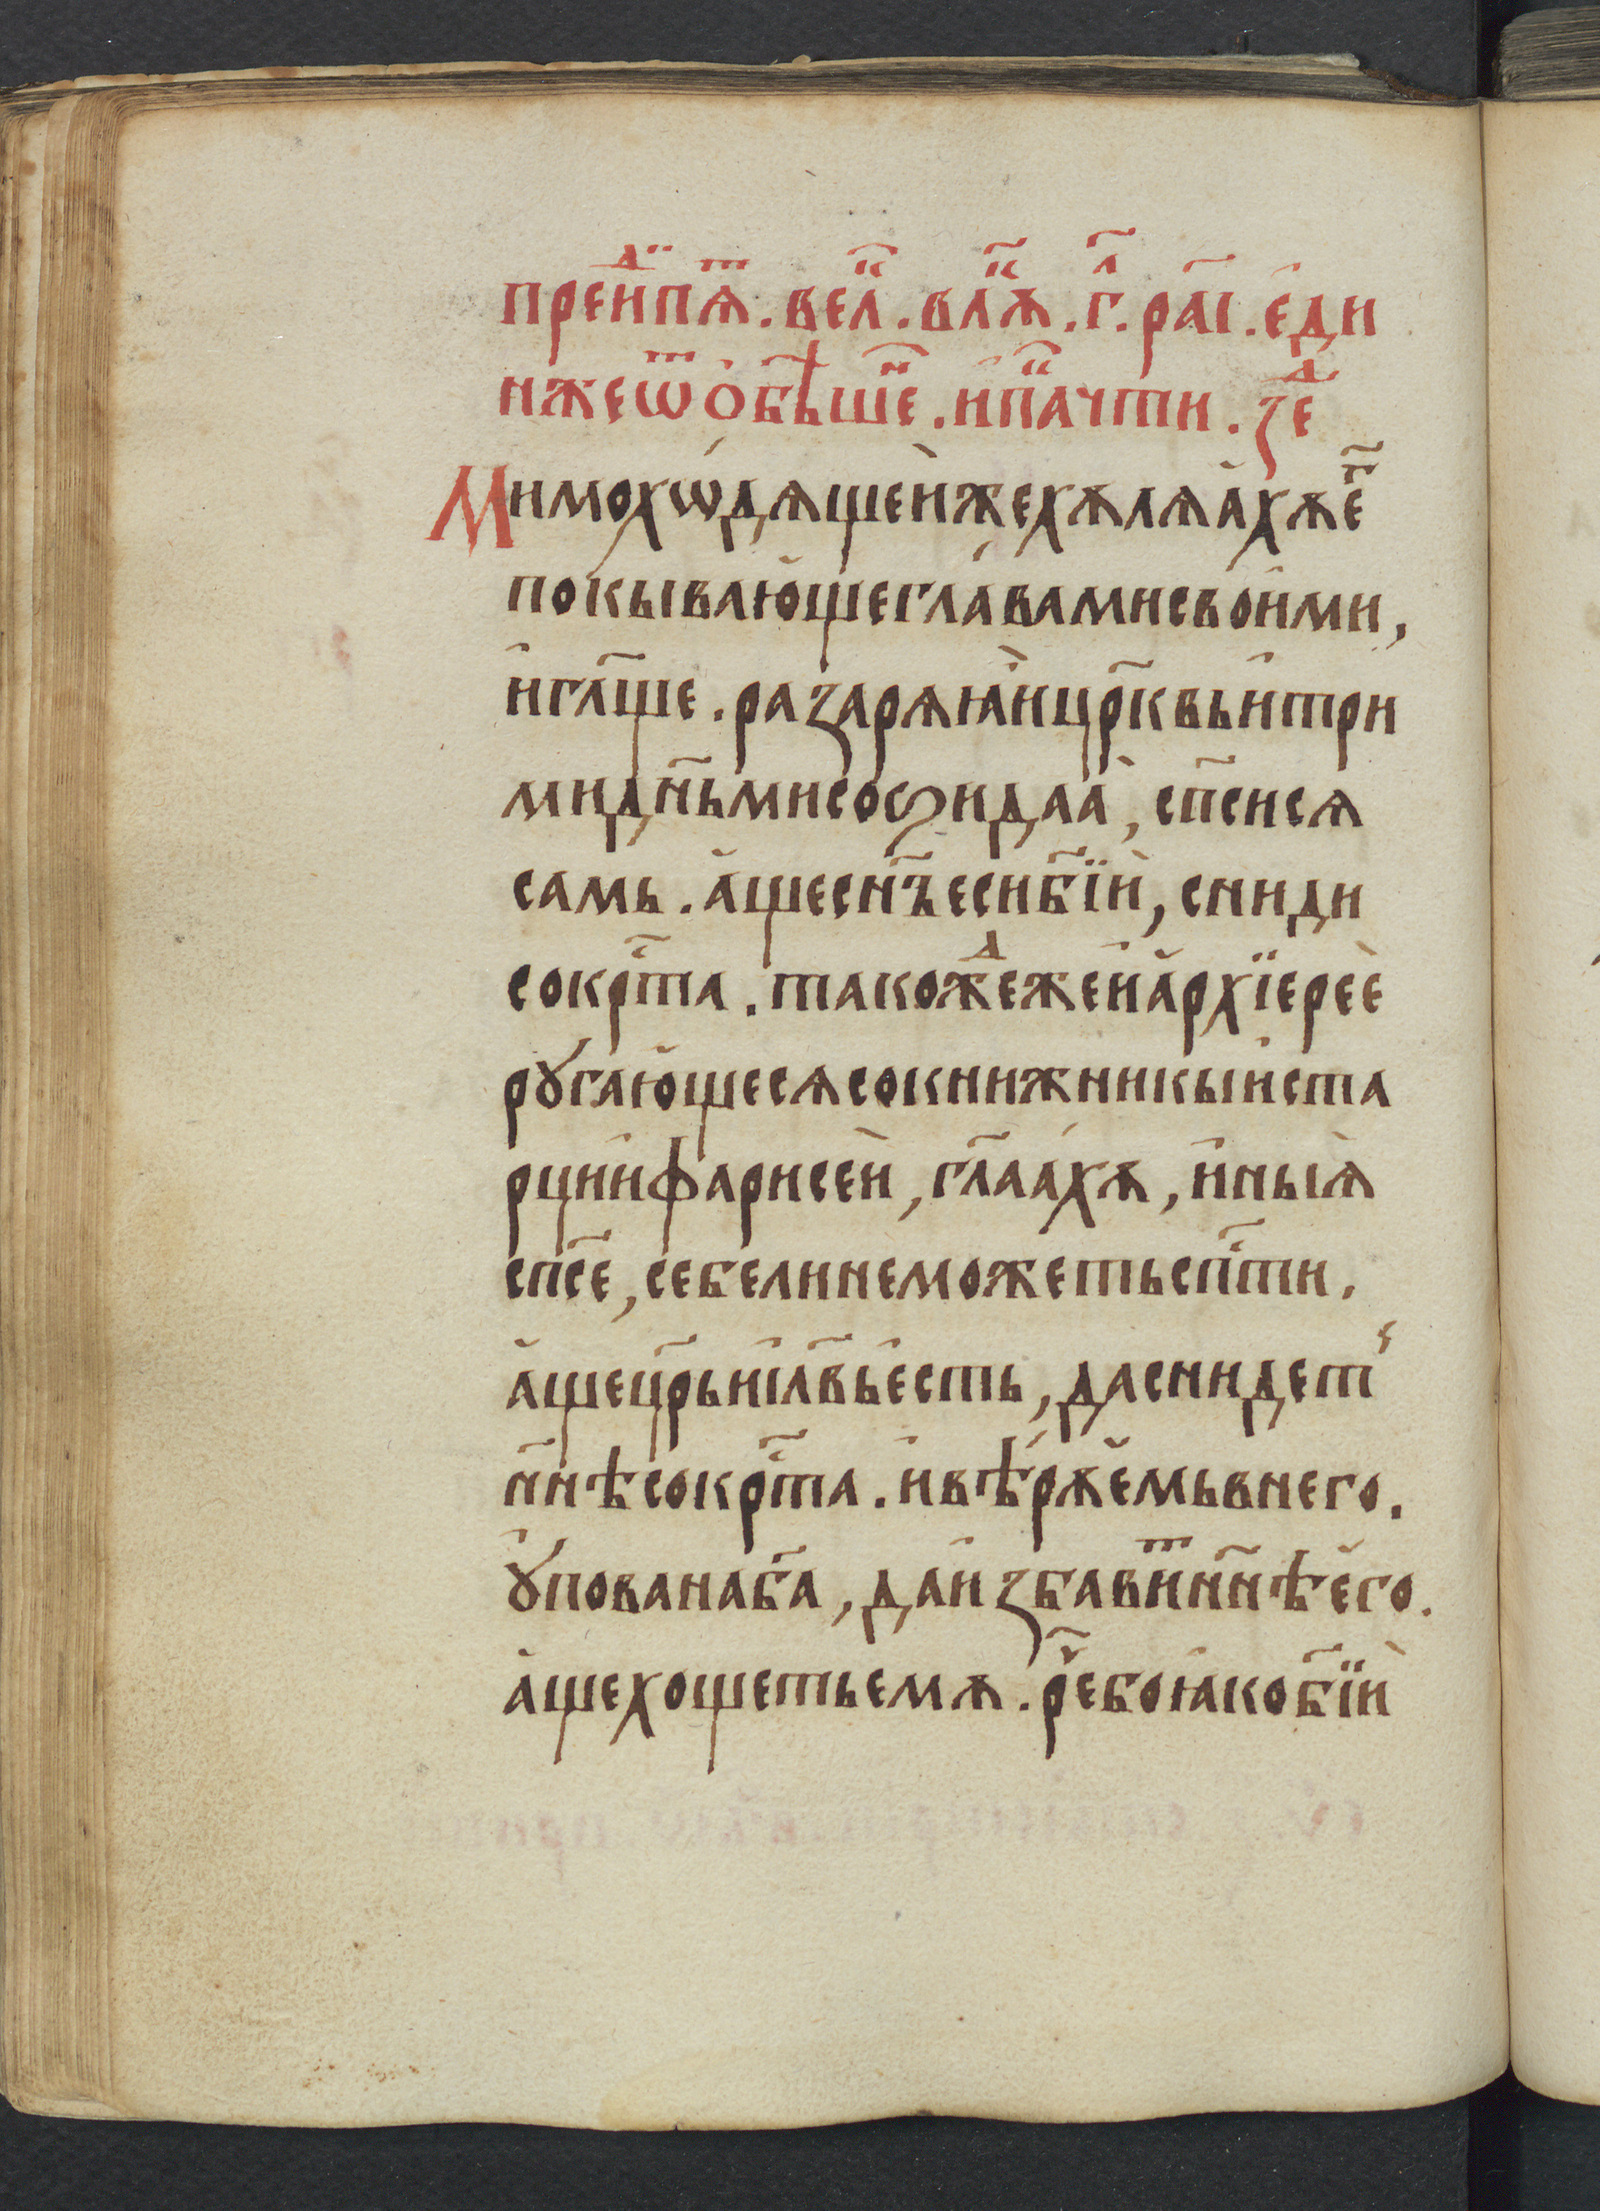 преи҆пⷣѧ҃ⷮ . вел҃ⷦ . вл҃ⷦѧ . г҃ⷧ . ра҃і . е҆ди
нжеѿѻ҆бѣ҃ше . и҆п҃ⷦачти . зеⷣ
Мимохѡ́дѧщеи҆же хѫлѧа҆хѫе҃ⷨ
покываю҆щеглáвамисвои҆ми ,
и҆гл҃ще . разарѧꙗ҆ицр҃квьи҆три
мидн҃ьмисоѕидаа҆ , сп҃сисѧ
самь . а҆щесн҃ъесиб҃їи , сниди
сокрⷭ҇та . такожⷣежеи҆а҆рхїерее҆
рꙋгаю҆щесѧсокнижникыи҆ста
рции҆фарисеи , гл҃аа҆хѫ , и҆ныѧ҆
сп҃се , себелинеможетьспⷭ҇ти .
а҆щецр҃ьиі҆л҃вье҆сть , даснидет
нн҃ѣсокрⷭ҇та . и҆вѣ́рѫе҆мьвнего .
ꙋ҆пованаб҃а , даи҆збавиⷮнн҃ѣе҆го .
а҆щехощетьемѧ . р҃ⷱебоꙗ҆коб҃їи